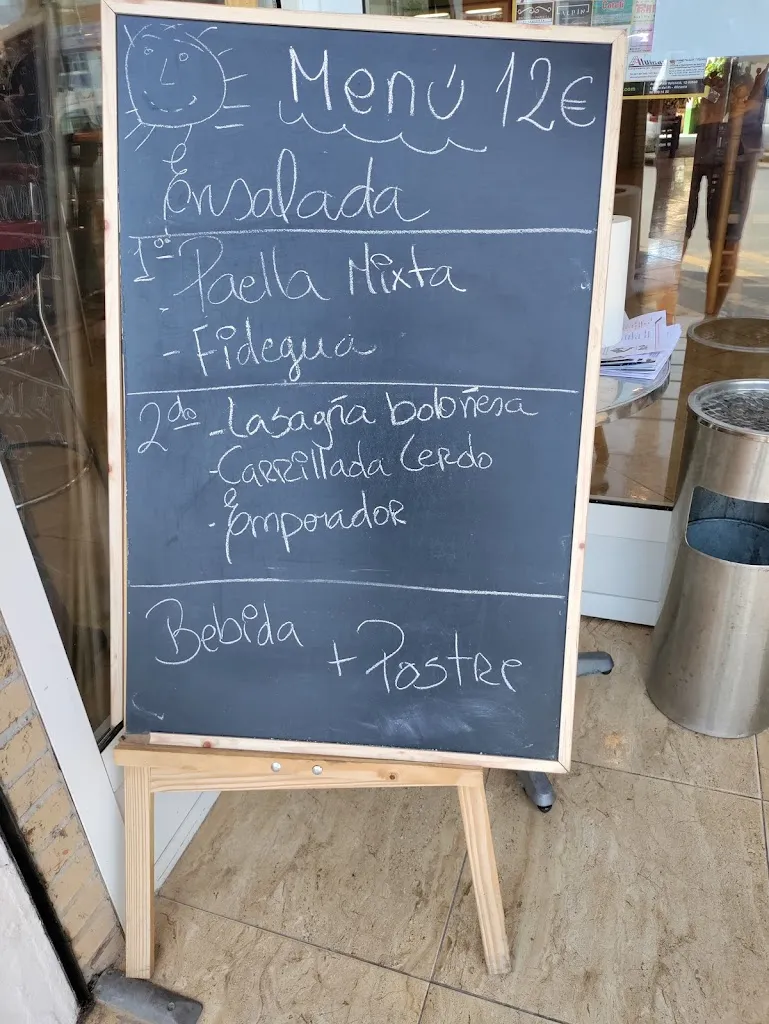 Menú 12€
Ensalada
1º - Paella Mixta
- Fideguá
2do - Lasagña boloñesa
- Carrillada Cerdo
- Emperador
Bebida + Postre